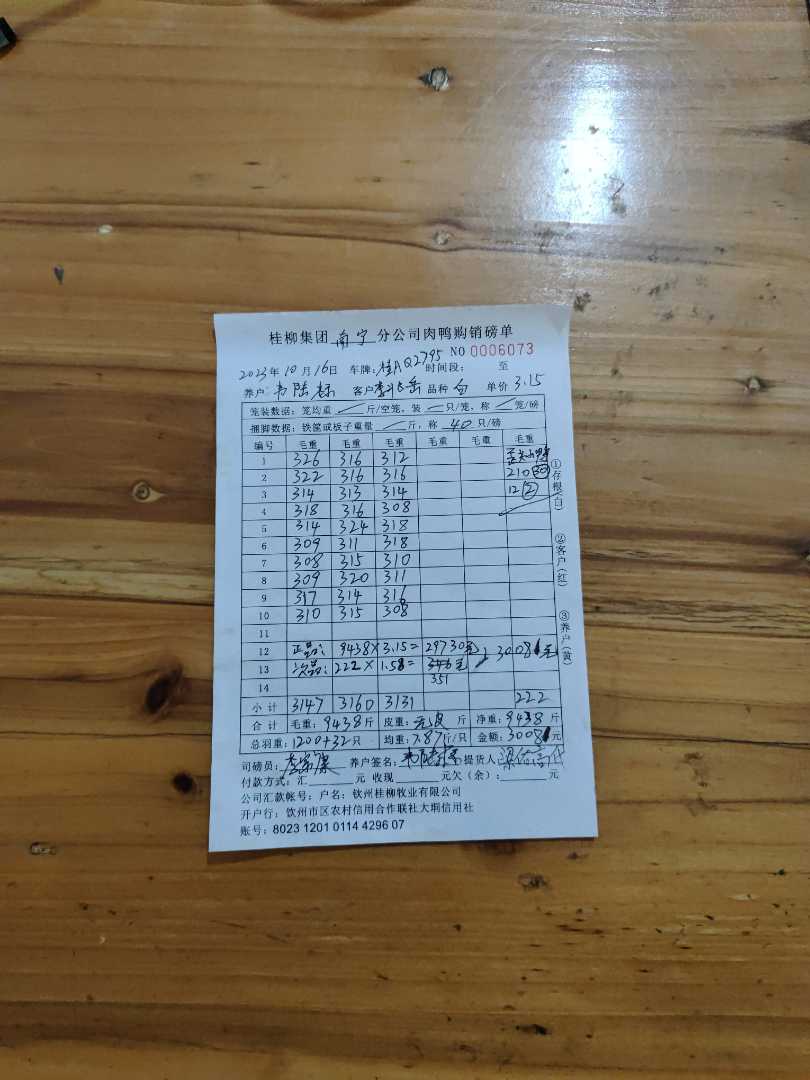 桂柳集团 南宁 分公司肉鸭购销磅单
NO 0006073
2023年10月16日 车牌：桂AQ2795 时间段： 至
养户：韦陆标 客户 品种 白 单价 3.15
笼装数据：笼均重 斤/空笼，装 只/笼，称 笼/磅
捆脚数据：铁筐或板子重量 斤，称 40 只/磅
编号 毛重 毛重 毛重 毛重 毛重 毛重
1 326 316 312
2 322 316 316 210 30
3 314 313 314 12 2
4 318 316 308
5 314 324 318
6 309 311 318
7 308 315 310
8 309 320 311
9 317 314 316
10 310 315 308
11
12 正品： 9438×3.15= 29730元 30081元
13 次品： 222×1.58= 元
351
14
小计 3147 3160 3131 222
合计 毛重：9438斤 皮重： 斤 净重：9438斤
总羽重：1200+32只 均重：7.87斤/只 金额：30081元
司磅员： 养户签名： 提货人：
付款方式：汇 元 收现 元欠（余）： 元
公司汇款帐号：户名：钦州桂柳牧业有限公司
开户行：钦州市区农村信用合作联社大垌信用社
账号：8023 1201 0114 4296 07
①存根（白）
②客户（红）
③养户（黄）